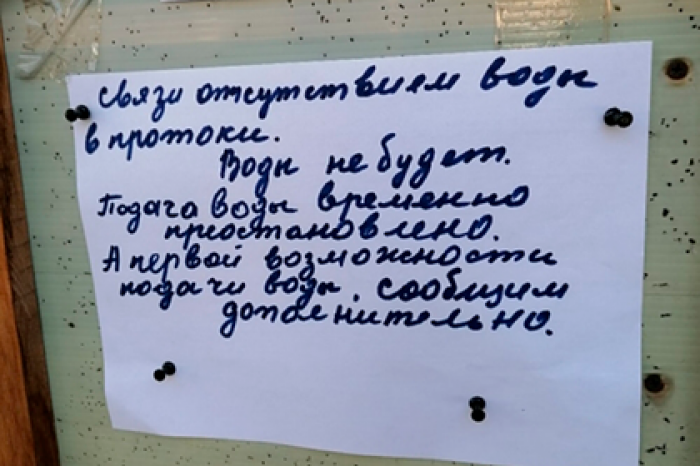 связи отсутствием воды
в протоки.
Воды не будет.
Подача воды временно
приостановлено.
А первой возможности
подачи воды, сообщим
дополнительно.